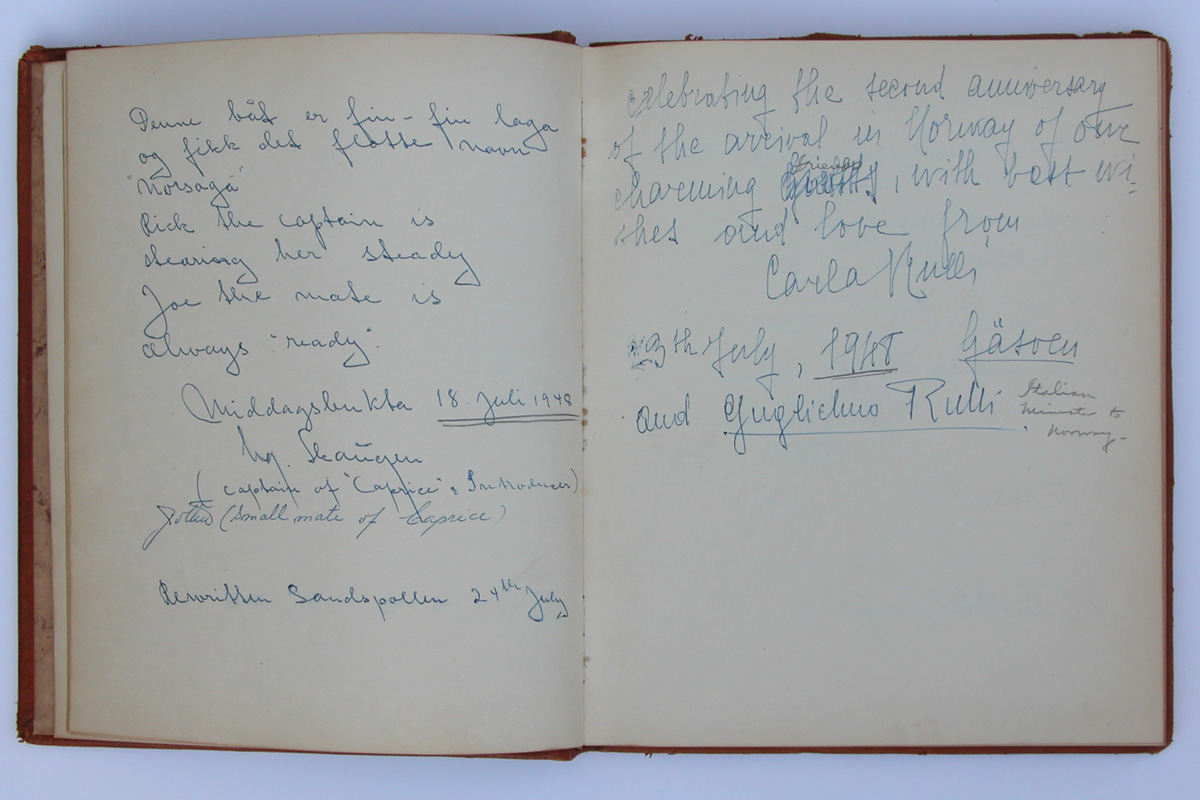 Denne båt er fin-fin laga
og fikk det flotte navn
"Norsaga"
Rick the captain is
stearing her steady
Joe the mate is
always "ready".
Middagsbukta 18. Juli 1948
(captain of "Caprice" & Introducer)
(Small mate of Caprice)
Rewritten Sandspollen 24th July
celebrating the second anniversary
of the arrival in Norway of our
charming friends, with best wi=
shes and love from
Carla Rulli
23th July, 1948 Gåsöen
and Guglielmo Rulli Italian
Minister to
Norway-